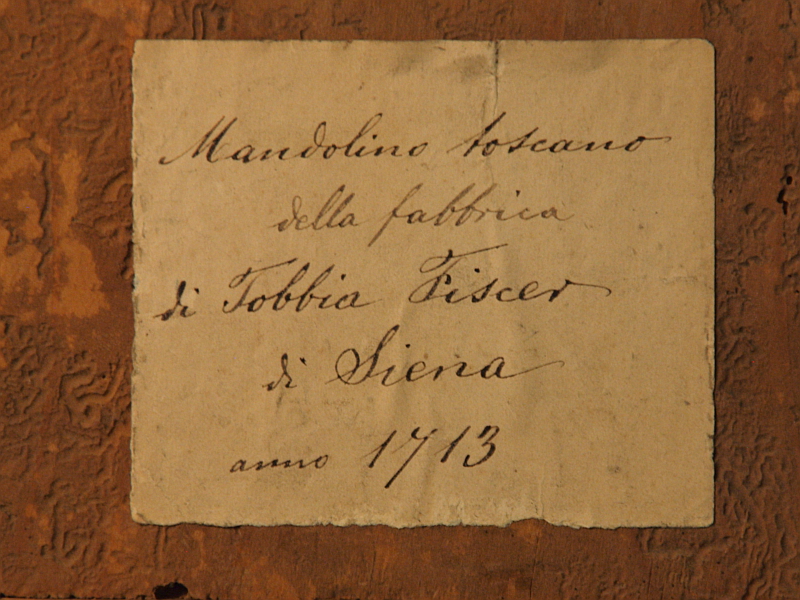 Mandolino toscano
della fabbrica
di Tobbia Fiscer
di Siena
anno 1713